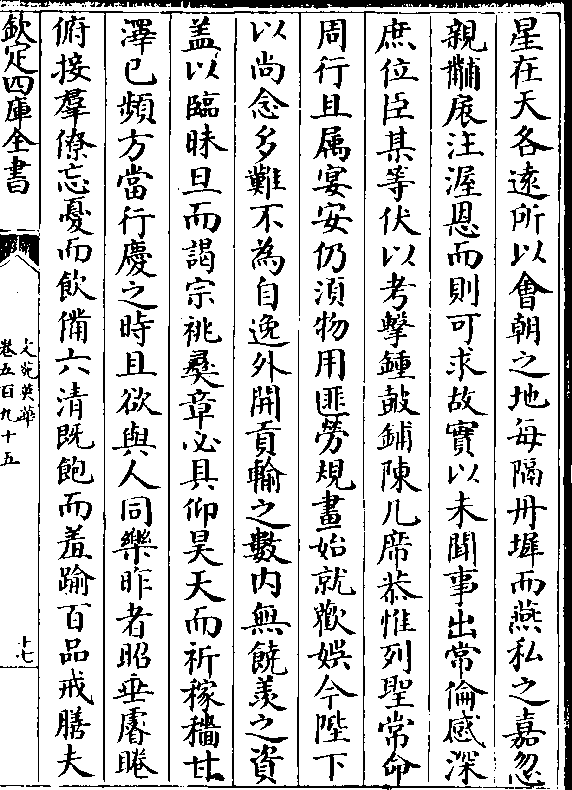 星在天各遠所以會朝之地每隔丹墀而燕私之嘉忽
親黼扆注渥恩而則可求故實以未聞事出常倫感深
庶位臣某等伏以考擊鍾鼔鋪陳几席恭惟列聖常命
周行且属宴安仍湏物用匪勞規畫始就歡娱今陛下
以尚念多難不為自逸外開貢輸之數内無饒羡之資
盖以臨昧旦而謁宗祧彛章必具仰昊天而祈稼穡甘
澤已頻方當行慶之時且欲與人同樂昨者昭垂睿睠
俯接羣僚忘憂而飲備六清既飽而羞踰百品戒膳夫
欽定四庫全書
文苑英華
卷五百九十五
十七